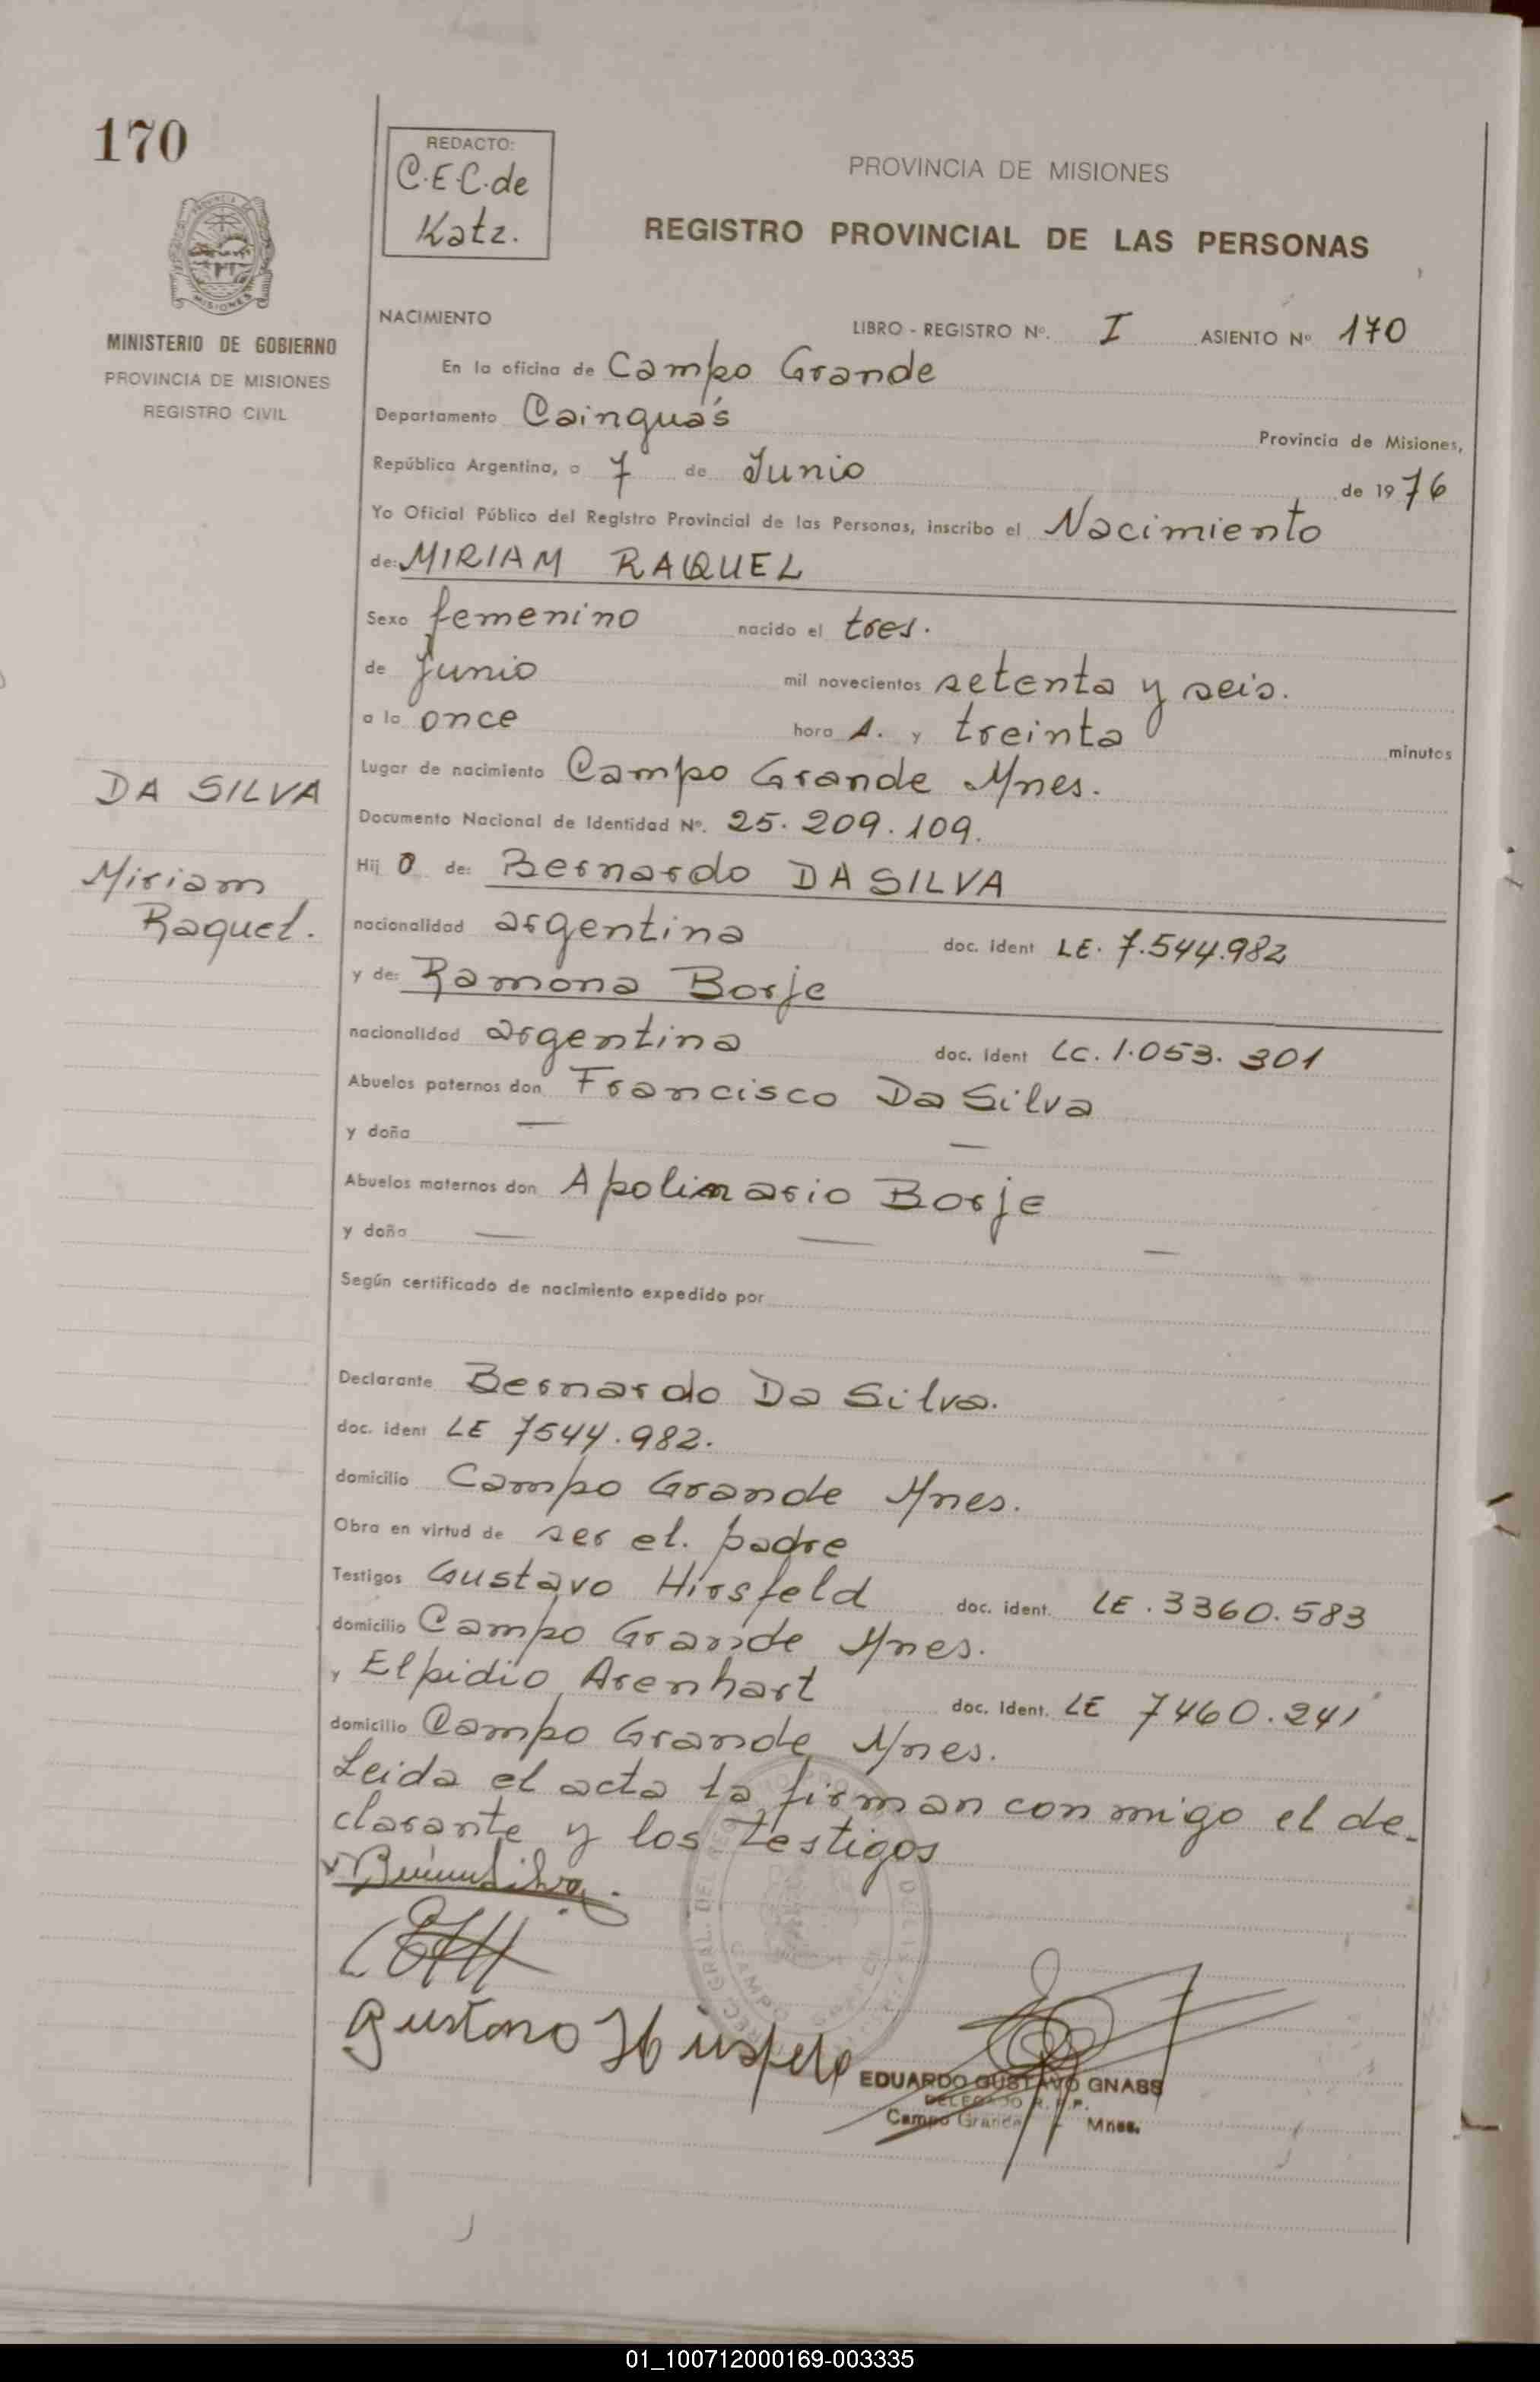 170
REDACTO:
C.E.C. de
Katz.
PROVINCIA DE MISIONES
REGISTRO PROVINCIAL DE LAS PERSONAS
MISIONES
MINISTERIO DE GOBIERNO
PROVINCIA DE MISIONES
REGISTRO CIVIL
NACIMIENTO
LIBRO - REGISTRO Nº. I ASIENTO Nº 170
En la oficina de Campo Grande
Departamento Cainguás Provincia de Misiones,
República Argentina, a 7 de Junio de 1976
Yo Oficial Público del Registro Provincial de las Personas, inscribo el Nacimiento
de: MIRIAM RAQUEL
Sexo femenino nacido el tres.
de Junio mil novecientos setenta y seis.
a la once hora A. y treinta minutos
Lugar de nacimiento Campo Grande Mnes.
DA SILVA
Documento Nacional de Identidad Nº. 25.209.109.
Hij o de: Bernardo DA SILVA
Miriam
Raquel.
nacionalidad argentina doc. ident LE. 7.544.982
y de: Ramona Borje
nacionalidad argentina doc. ident LC. 1.053.301
Abuelos paternos don Francisco Da Silva
y doña — —
Abuelos maternos don Apolinario Borje
y doña — — —
Según certificado de nacimiento expedido por
Declarante Bernardo Da Silva.
doc. ident LE 7544.982.
domicilio Campo Grande Mnes.
Obra en virtud de ser el. padre
Testigos Gustavo Hirsfeld doc. ident. LE. 3360.583
domicilio Campo Grande Mnes.
y Elpidio Arenhart doc. ident. LE 7460.241
domicilio Campo Grande Mnes.
Leida el acta la firman conmigo el de-
clarante y los testigos
Gustavo Hirsfeld
EDUARDO GUSTAVO GNASS
DELEGADO R. P. P.
Campo Grande - Mnes.
01_100712000169-003335